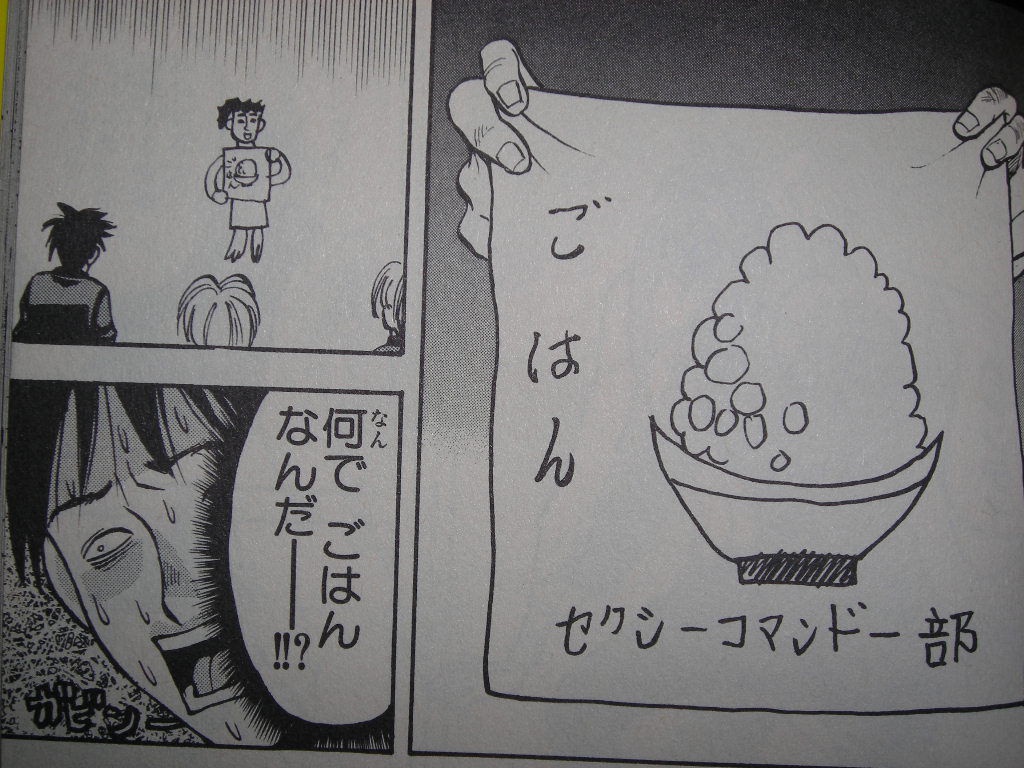 ごはん
セクシーコマンドー部
何でごはん
なん
なんだーー!!?
ガビーン